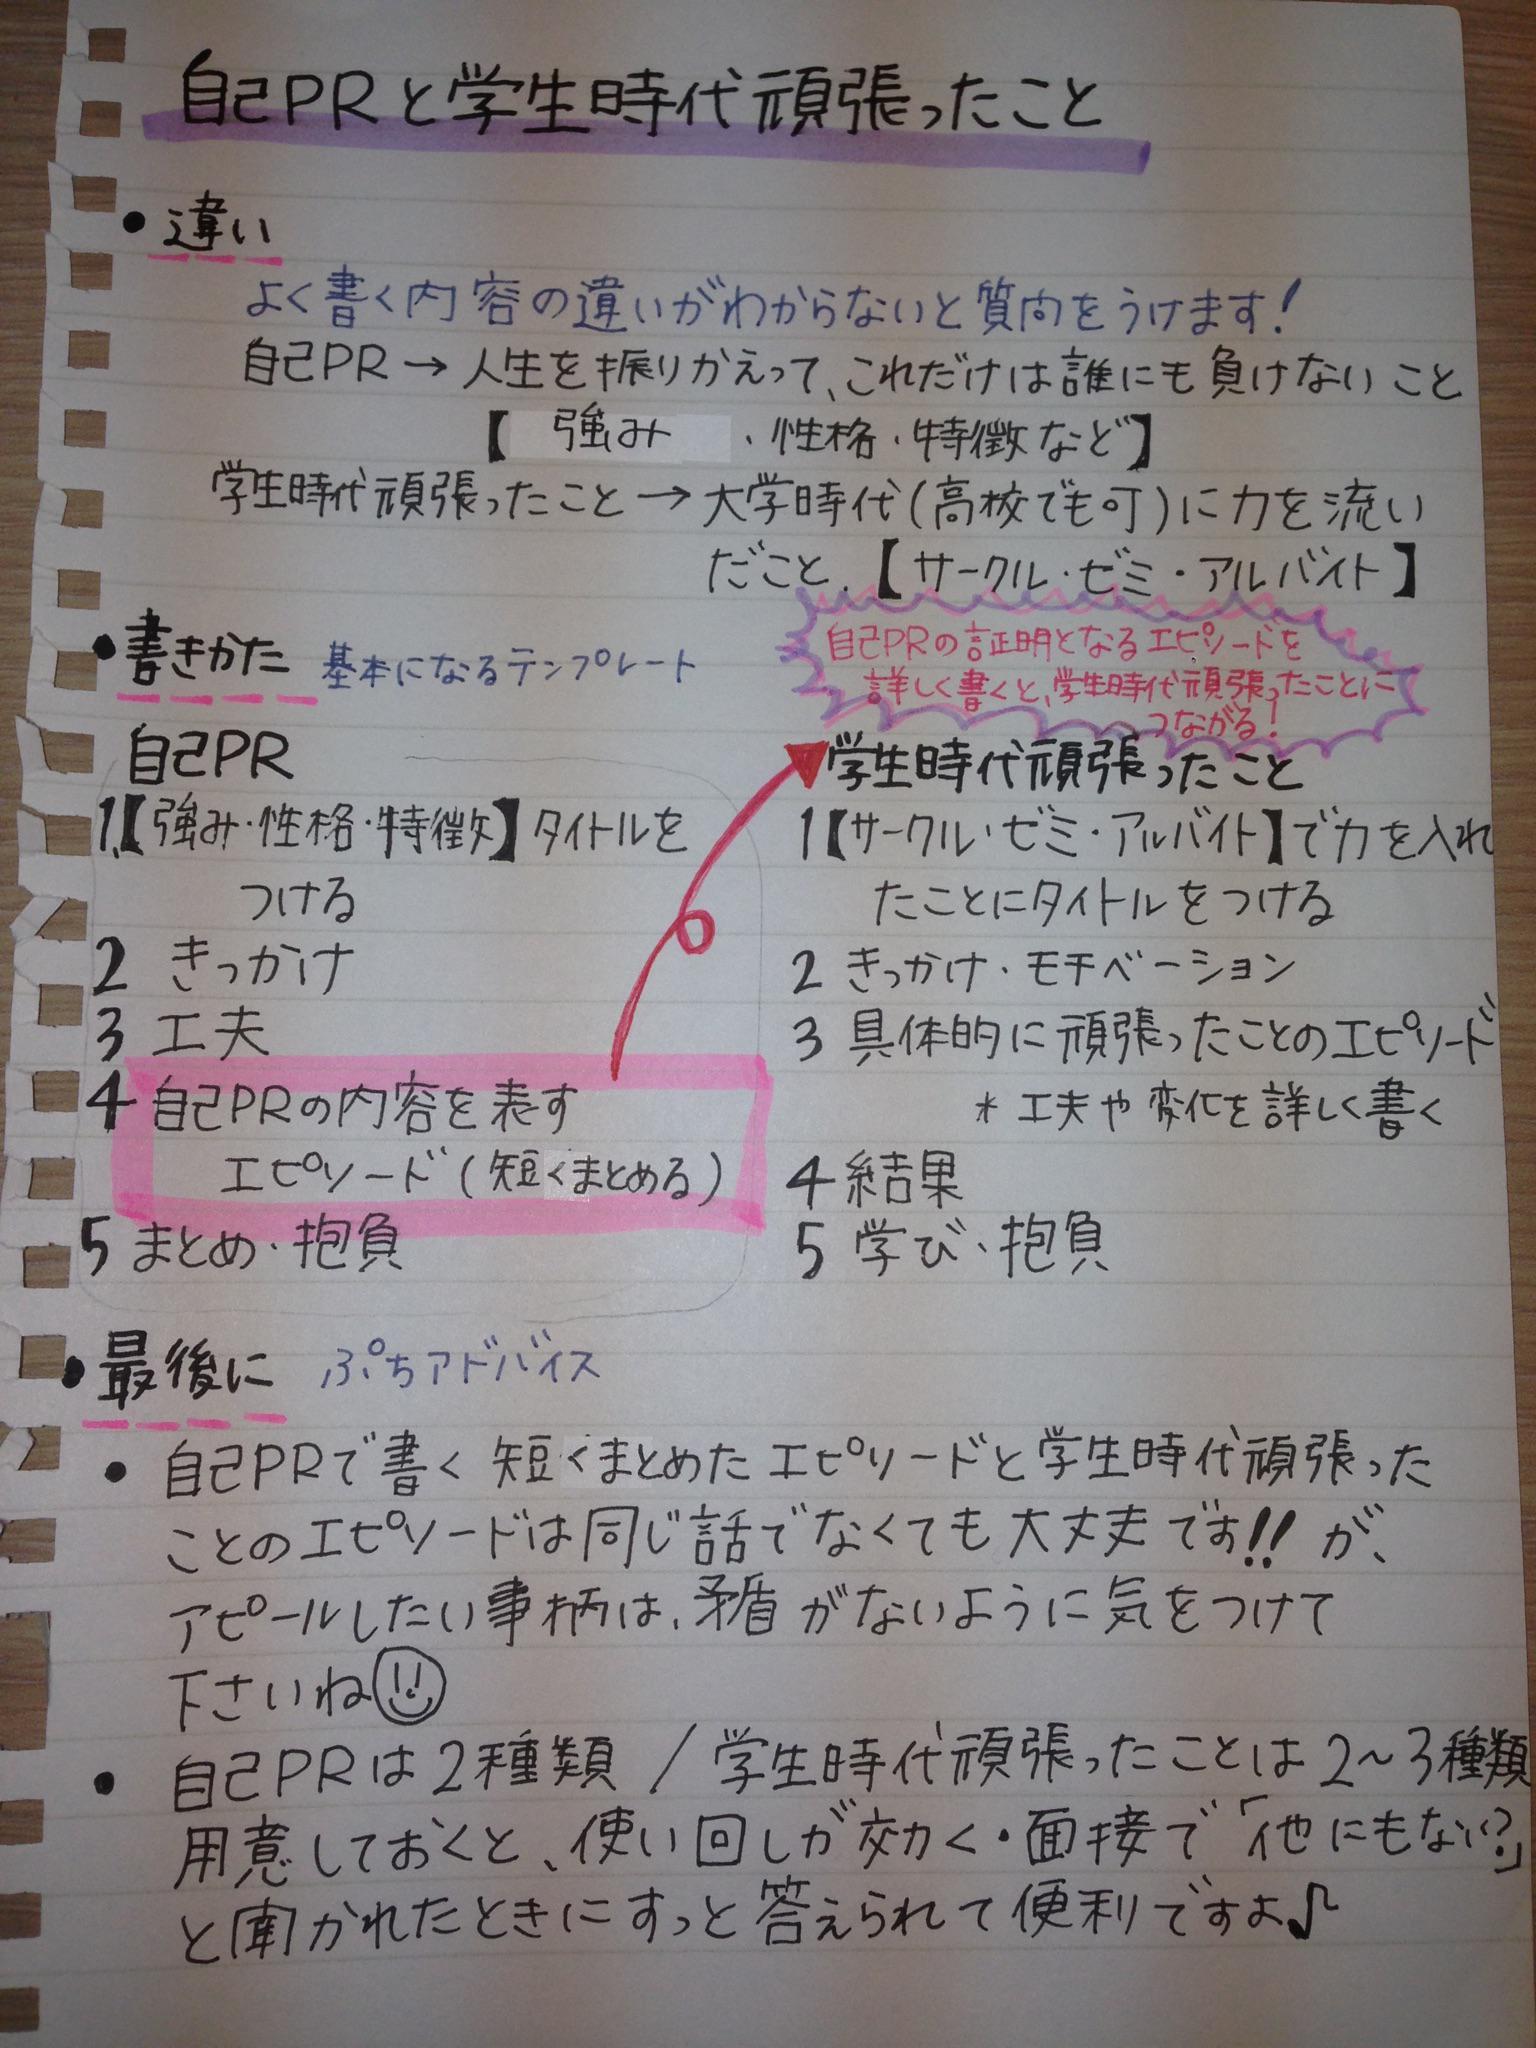 自己PRと学生時代頑張ったこと
・違い
よく書く内容の違いがわからないと質問をうけます!
自己PR→人生を振りかえって、これだけは誰にも負けないこと
【強み・性格・特徴など】
学生時代頑張ったこと→大学時代(高校でも可)に力を流い
だこと、【サークル・ゼミ・アルバイト】
・書きかた 基本になるテンプレート
自己PRの証明となるエピソードを
詳しく書くと、学生時代頑張ったことに
つながる!
自己PR
1、【強み・性格・特徴】タイトルを
つける
2 きっかけ
3 工夫
4 自己PRの内容を表す
エピソード(短くまとめる)
5 まとめ・抱負
学生時代頑張ったこと
1【サークル・ゼミ・アルバイト】で力を入れ
たことにタイトルをつける
2 きっかけ・モチベーション
3 具体的に頑張ったことのエピソード
*工夫や変化を詳しく書く
4 結果
5 学び・抱負
・最後に ぷちアドバイス
・自己PRで書く短くまとめたエピソードと学生時代頑張った
ことのエピソードは同じ話でなくても大丈夫です!!が、
アピールしたい事柄は、矛盾がないように気をつけて
下さいね
・自己PRは2種類/学生時代頑張ったことは2~3種類
用意しておくと、使い回しが効く・面接で「他にもない?」
と聞かれたときにすっと答えられて便利ですよ♪